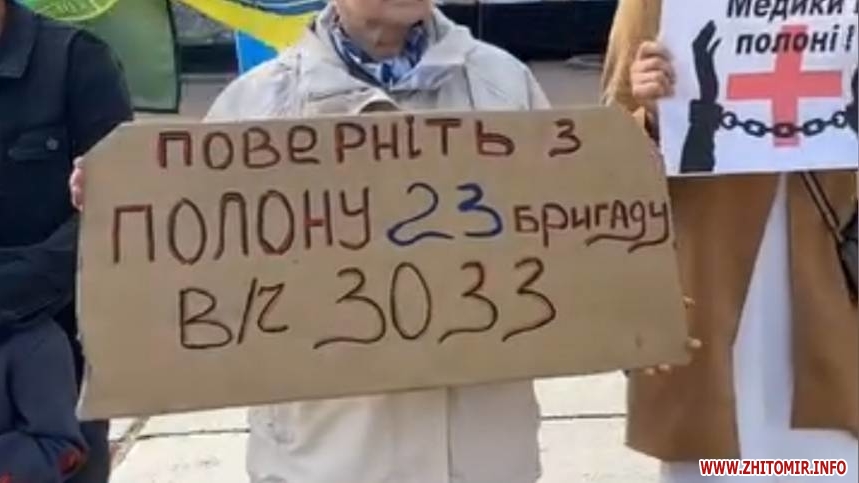 ПОВЕРНІТЬ З
ПОЛОНУ 23 БРИГАДУ
В/Ч 3033
Медики в
полоні!
WWW.ZHITOMIR.INFO